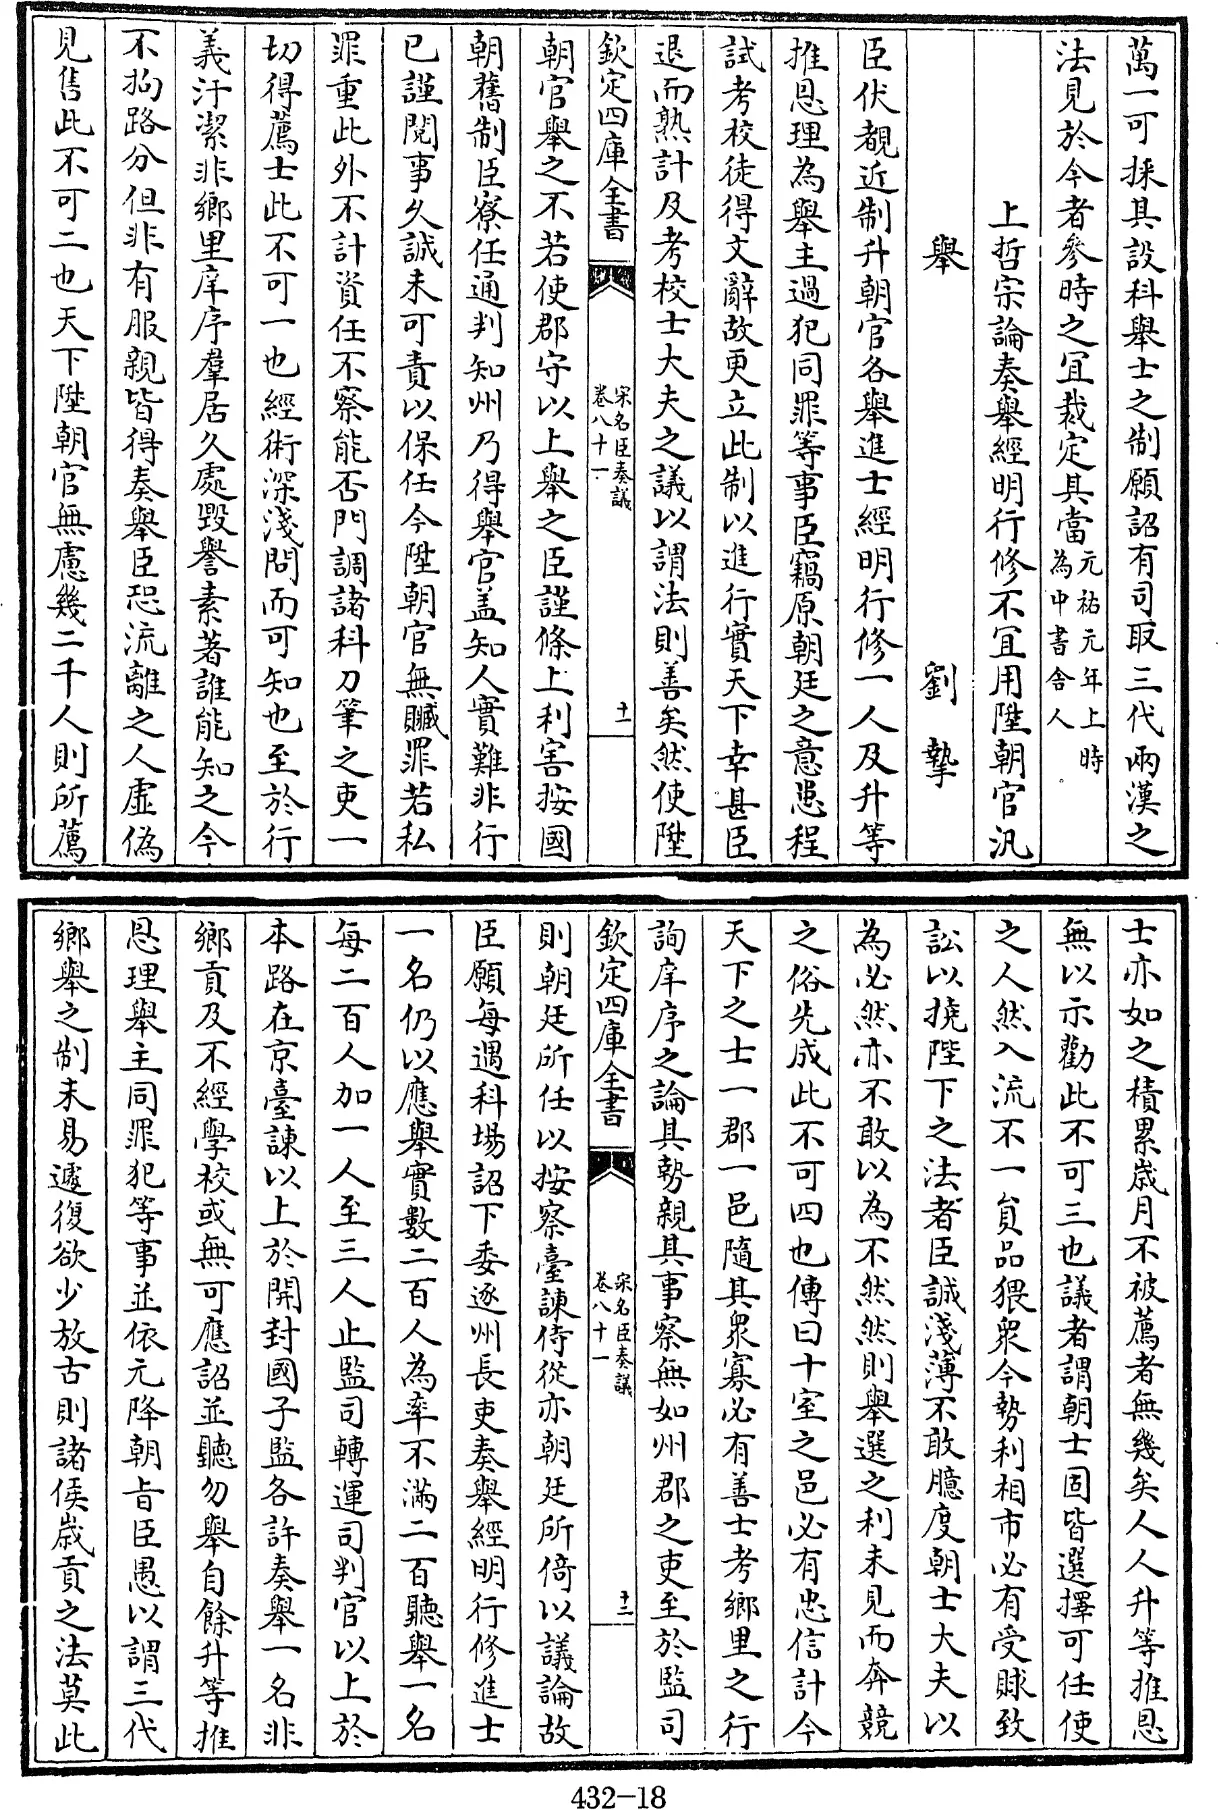 萬一可採其設科舉士之制願詔有司取三代兩漢之
法見於今者參時之宜裁定其當元祐元年上時為中書舍人
上哲宗論奏舉經明行修不宜用陞朝官汎
舉　劉摯
臣伏覩近制升朝官各舉進士經明行修一人及升等
推恩理為舉主過犯同罪等事臣竊原朝廷之意患程
試考校徒得文辭故更立此制以進行實天下幸甚臣
退而熟計及考校士大夫之議以謂法則善矣然使陞
欽定四庫全書　宋名臣奏議卷八十一　十一
朝官舉之不若使郡守以上舉之臣謹條上利害按國
朝舊制臣寮任通判知州乃得舉官盖知人實難非行
已謹閱事久誠未可責以保任今陞朝官無贓罪若私
罪重此外不計資任不察能否門調諸科刀筆之吏一
切得薦士此不可一也經術深淺問而可知也至於行
義汙潔非鄉里庠序羣居久處毀譽素著誰能知之今
不拘路分但非有服親皆得奏舉臣恐流離之人虛偽
見售此不可二也天下陞朝官無慮幾二千人則所薦
士亦如之積累歲月不被薦者無幾矣人人升等推恩
無以示勸此不可三也議者謂朝士固皆選擇可任使
之人然入流不一員品猥衆今勢利相市必有受賕致
訟以撓陛下之法者臣誠淺薄不敢臆度朝士大夫以
為必然亦不敢以為不然然則舉選之利未見而奔競
之俗先成此不可四也傳曰十室之邑必有忠信計今
天下之士一郡一邑隨其衆寡必有善士考鄉里之行
詢庠序之論其勢親其事察無如州郡之吏至於監司
欽定四庫全書　宋名臣奏議卷八十一　十二
則朝廷所任以按察臺諫侍從亦朝廷所倚以議論故
臣願每遇科塲詔下委逐州長吏奏舉經明行修進士
一名仍以應舉實數二百人為率不滿二百聽舉一名
每二百人加一人至三人止監司轉運司判官以上於
本路在京臺諫以上於開封國子監各許奏舉一名非
鄉貢及不經學校或無可應詔並聽勿舉自餘升等推
恩理舉主同罪犯等事並依元降朝旨臣愚以謂三代
鄉舉之制未易遽復欲少放古則諸侯歲貢之法莫此
432-18